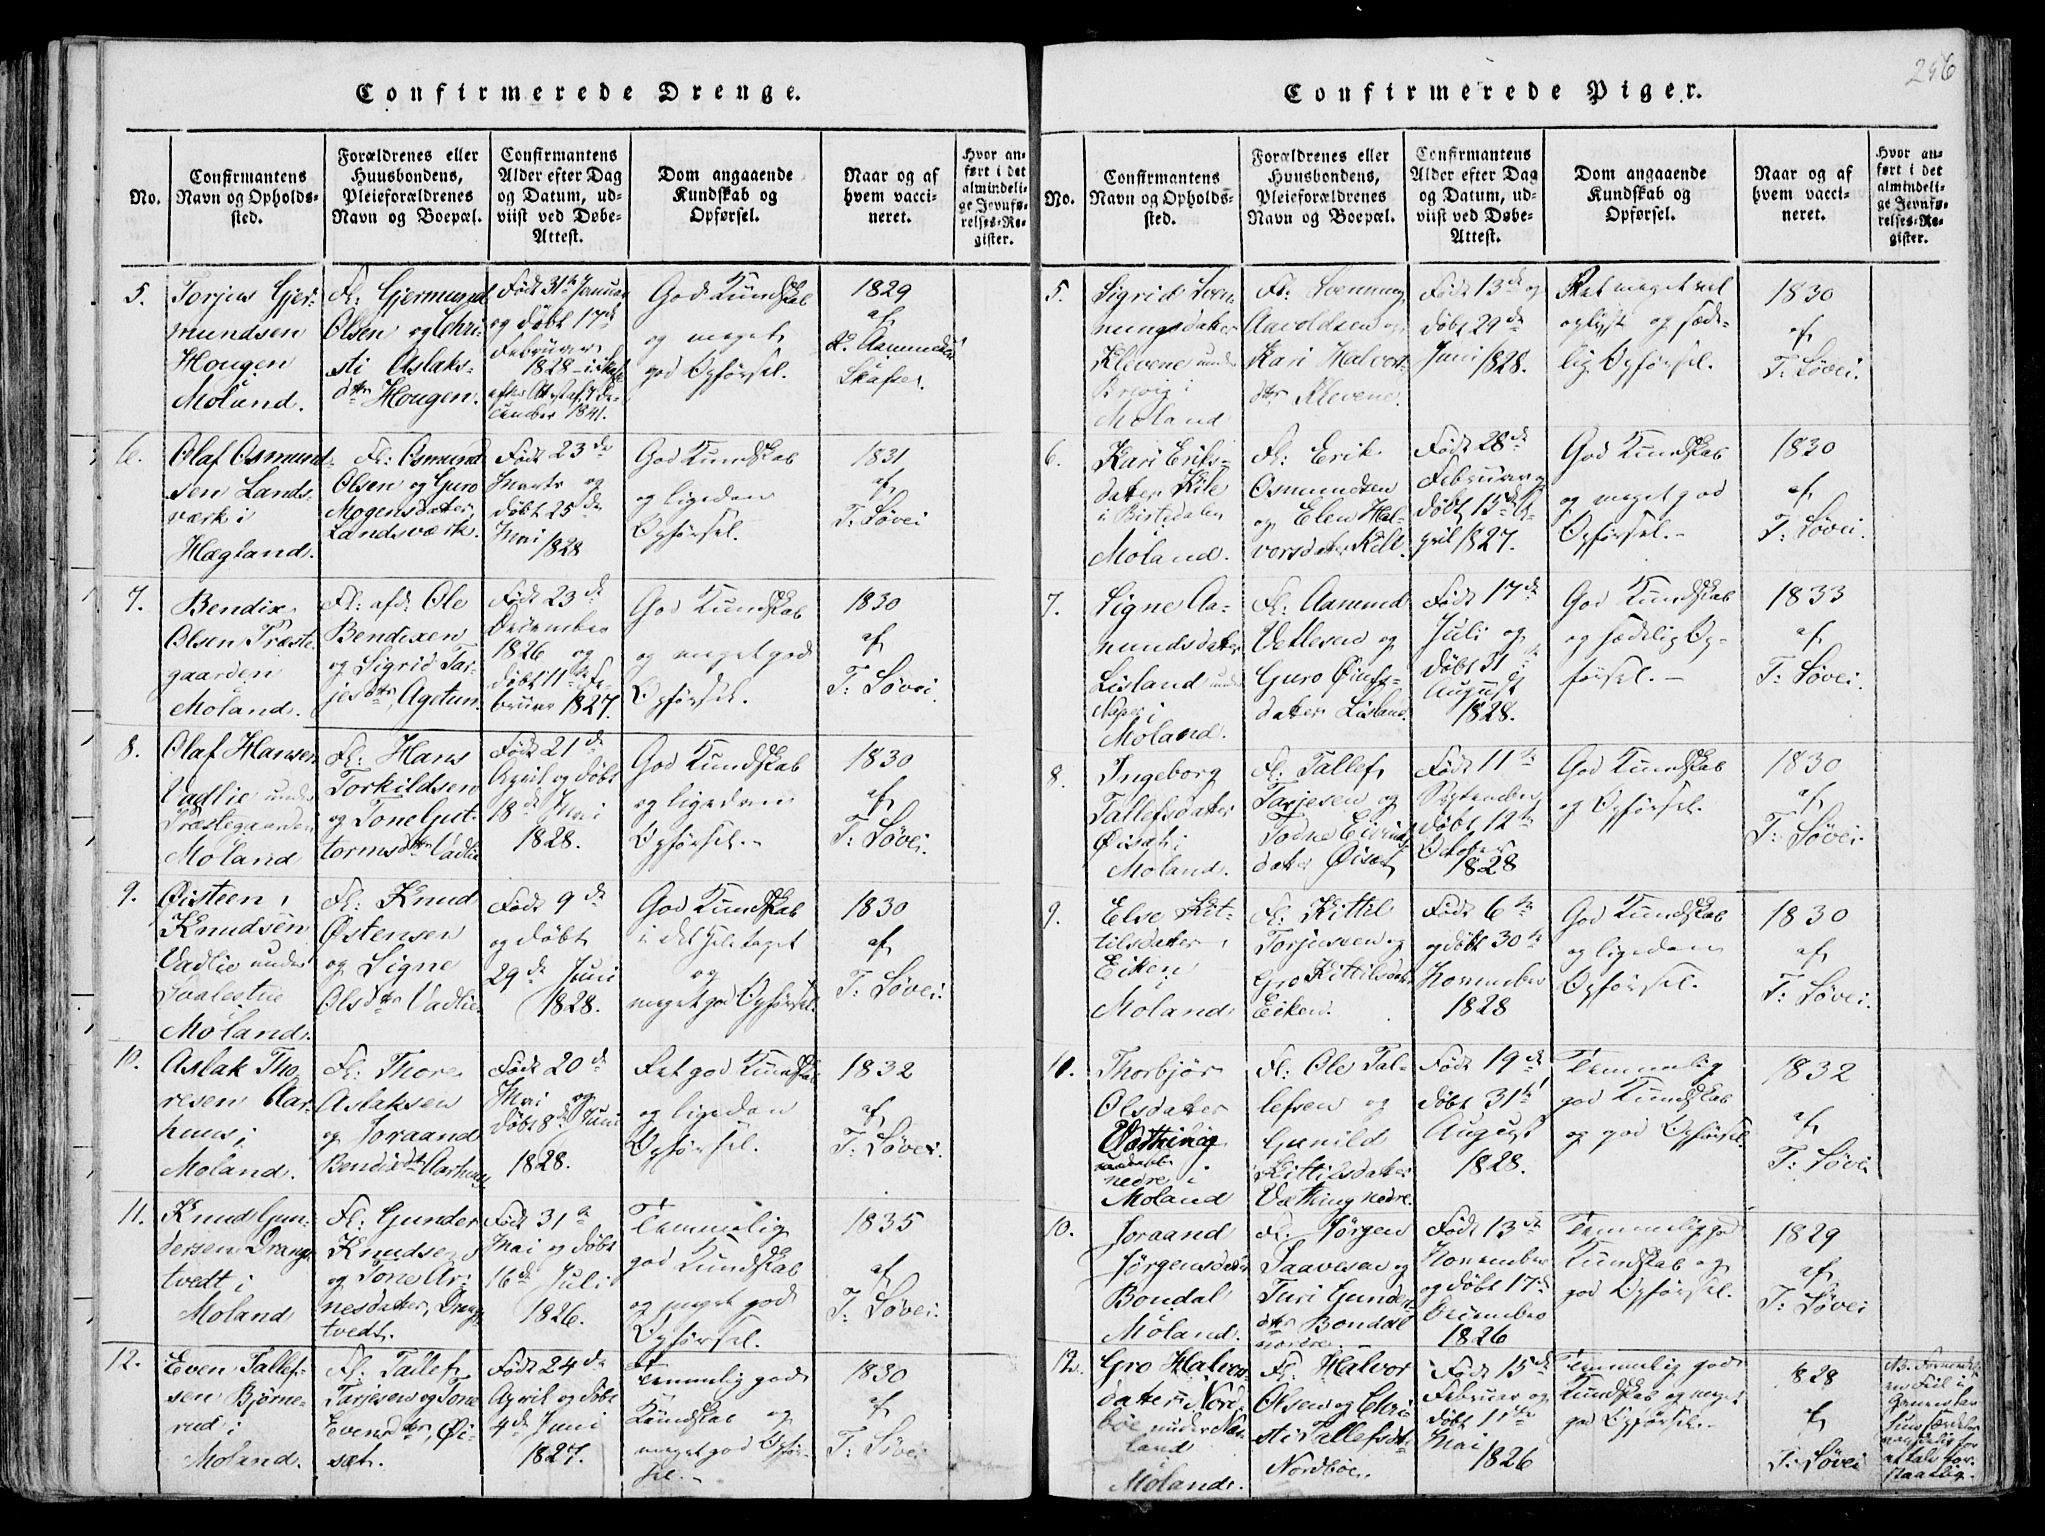 256
Confirmerede Drenge.
No.
Confirmantens
Navn og Opholds-
sted.
Forældrenes eller
Huusbondens,
Pleieforældrenes
Navn og Boepæl.
Confirmantens
Alder efter Dag
og Datum, ud-
viist ved Døbe-
Attest.
Dom angaaende
Kundskab og
Opførsel.
Naar og af
hvem vacci-
neret.
Hvor an-
ført i det
almindeli-
ge Jevnfø-
relses-Re-
gister.
5.
Torjus Gjer-
mundsen
Hougen
Moland.
Fl: Gjermund
Olsen og Chri-
sti Aslaks-
dtr Hougen.
Født 31te Januar
og døbt 17de
Februar
1828
efter Attest af 7 De-
cember 1841.
God Kundskab
og meget
god Opførsel.
1829
af
Aamundsen
Skafsæ.
6.
Olaf Osmund-
sen Lands-
værk i
Hægland.
Fl: Osmund
Olsen og Guro
Mogensdater,
Landsværk.
Født 23de
Marts og
døbt 25de
Mai 1828
God Kundskab
og ligedan
Opførsel.
1831
af
T. Løvei
7.
Bendix
Olsen Præste-
gaarden
Moland.
Fl: afd: Ole
Bendixen
og Sigrid Tar-
jesdtr, Agetun.
Født 23de
December
1826 og
døbt 11te Fe-
bruar 1827.
God Kundskab
og meget god
Opførsel.
1830
af
T: Løvei.
8.
Olaf Hansen
Vadlie under
Præstegaarden
Moland
Fl: Hans
Torkildsen
og Tone Gut-
tormsdtr Vadlie
Født 21de
April og døbt
18de Mai
1828.
God Kundskab
og ligedan
Opførsel.
1830
af
T: Løvei.
9.
Øisteen
Knudsen
Vadlie under
Moland.
Fl: Knud
Østensen
og Signe
Olsdtr Vadlie
Født 9de
og døbt
29de Juni
1828.
God Kundskab
i det hele taget
og
meget god Opførsel.
1830
af
T: Løvei.
10.
Aslak Tho-
resen Aar-
huus i
Moland.
Fl: Thore
Aslaksen
og Joraand
Bendixdtr Aarhuus
Født 20de
Mai og
døbt 8de Juni
1828.
Ret god Kundskab
og ligedan
Opførsel.
1832
af
T: Løvei.
11.
Knud Gun-
dersen Drang-
tvedt i
Moland
Fl: Gunder
Knudsen
og Tone Ar-
nesdater, Drang-
tvedt.
Født 31te
Mai og døbt
16de Juli
1826.
Temmelig
god Kundskab
og meget god
Opførsel.
1835
af
T: Løvei.
12.
Even Tallef-
sen Bjørne-
rud i
Moland.
Fl: Tallef
Tarjesen og Tone
Evensdtr, Øi-
sæt.
Født 24de
April og døbt
4de Juni
1827.
Temmelig god
Kundskab og
meget god Opfør-
sel.
1830
af
T: Løvei
Confirmerede Piger.
No.
Confirmantens
Navn og Opholds-
sted.
Forældrenes eller
Huusbondens,
Pleieforældrenes
Navn og Boepæl.
Confirmantens
Alder efter Dag
og Datum, ud-
viist ved Døbe-
Attest.
Dom angaaende
Kundskab og
Opførsel.
Naar og af
hvem vacci-
neret.
Hvor an-
ført i det
almindeli-
ge Jevnfø-
relses-Re-
gister.
5.
Sigrid Sven-
nungsdater
Klevene under
Brevig i
Moland
Fl: Svennung
Aavoldsen og
Kari Halvors-
dtr Klevene.
Født 13de og
døbt 29de
Juni 1828.
Ret meget vel
oplyst og sæde-
lig Opførsel.
1830
af
T: Løvei.
6.
Kari Eriks-
dater Kile
i Bistedalen
Moland.
Fl: Erik
Osmundsen
og Elen Hal-
vorsdater Kile.
Født 28de
Februar og
døbt 15de A-
pril 1827.
God Kundskab
og meget god
Opførsel.
1830
af
T: Løvei.
7.
Signe Aa-
mundsdater
Lisland under
Naper i
Moland.
Fl: Aamund
Vetlesen og
Guro Øinfs-
dater Lisland.
Født 17de
Juli og
døbt 31te
August
1828.
God Kundskab
og sædelig Op-
førsel.
1833
af
T: Løvei.
8.
Ingeborg
Tallefsdater
Øisæt i
Moland.
Fl: Tallef
Tarjesen og
Todne Eivinds-
dater Øisæt
Født 11te
September
døbt 12te
October
1828
God Kundskab
og Opførsel.
1830
af
T: Løvei.
9.
Else Kit-
tilsdater
Eiken i
Moland
Fl: Kittel
Torjussen og
Gro Kittilsdtr
Eiken.
Født 6te
og døbt 30te
November
1828
God Kundskab
og ligedan
Opførsel.
1830
af
T: Løvei.
10.
Thorbjør
Olsdater
Væthing
nedre i
Moland
Fl: Ole Tal-
lefsen og
Gunild
Kittilsdater
Væthing nedre.
Født 19de
døbt 31te
August
1828.
Temmelig
god Kundskab
og god Opførsel.
1832
af
T: Løvei
10.
Joraand
Jørgensdater
Bondal
Moland.
Fl: Jørgen
Saavesen og
Turi Gunders-
dtr Bondal
nordre.
Født 13de
November
og døbt 17de
December
1826
Temmelig god
Kundskab og
god Opførsel.
1829
af
T: Løvei.
12.
Gro Halvors-
dater Nord-
bøe under Næs-
land
Moland.
Fl: Halvor
Olsen og Chri-
sti Tallefsdtr
Nordbøe.
Født 15de
Februar og
døbt 11te
Mai
1826
Temmelig god
Kundskab og meget
god Opførsel.
1828
af
T: Løvei
NB. Formedelst
en Feil i
Ganen kan
hun
for
at tale for-
staaelig.